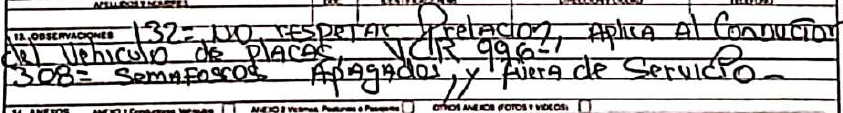 APELLIDOS Y NOMBRES
13. OBSERVACIONES 132= NO respetar Prelacion, Aplica Al Conductor
del Vehiculo de PlacAs VCR 996-1
308= Semafosros Apagados, y fuera de Servicio-
14. ANEXOS ANEXO 1 Conductores, Vehículos ANEXO 2 Víctimas, Peatones o Pasajeros OTROS ANEXOS (FOTOS Y VIDEOS)